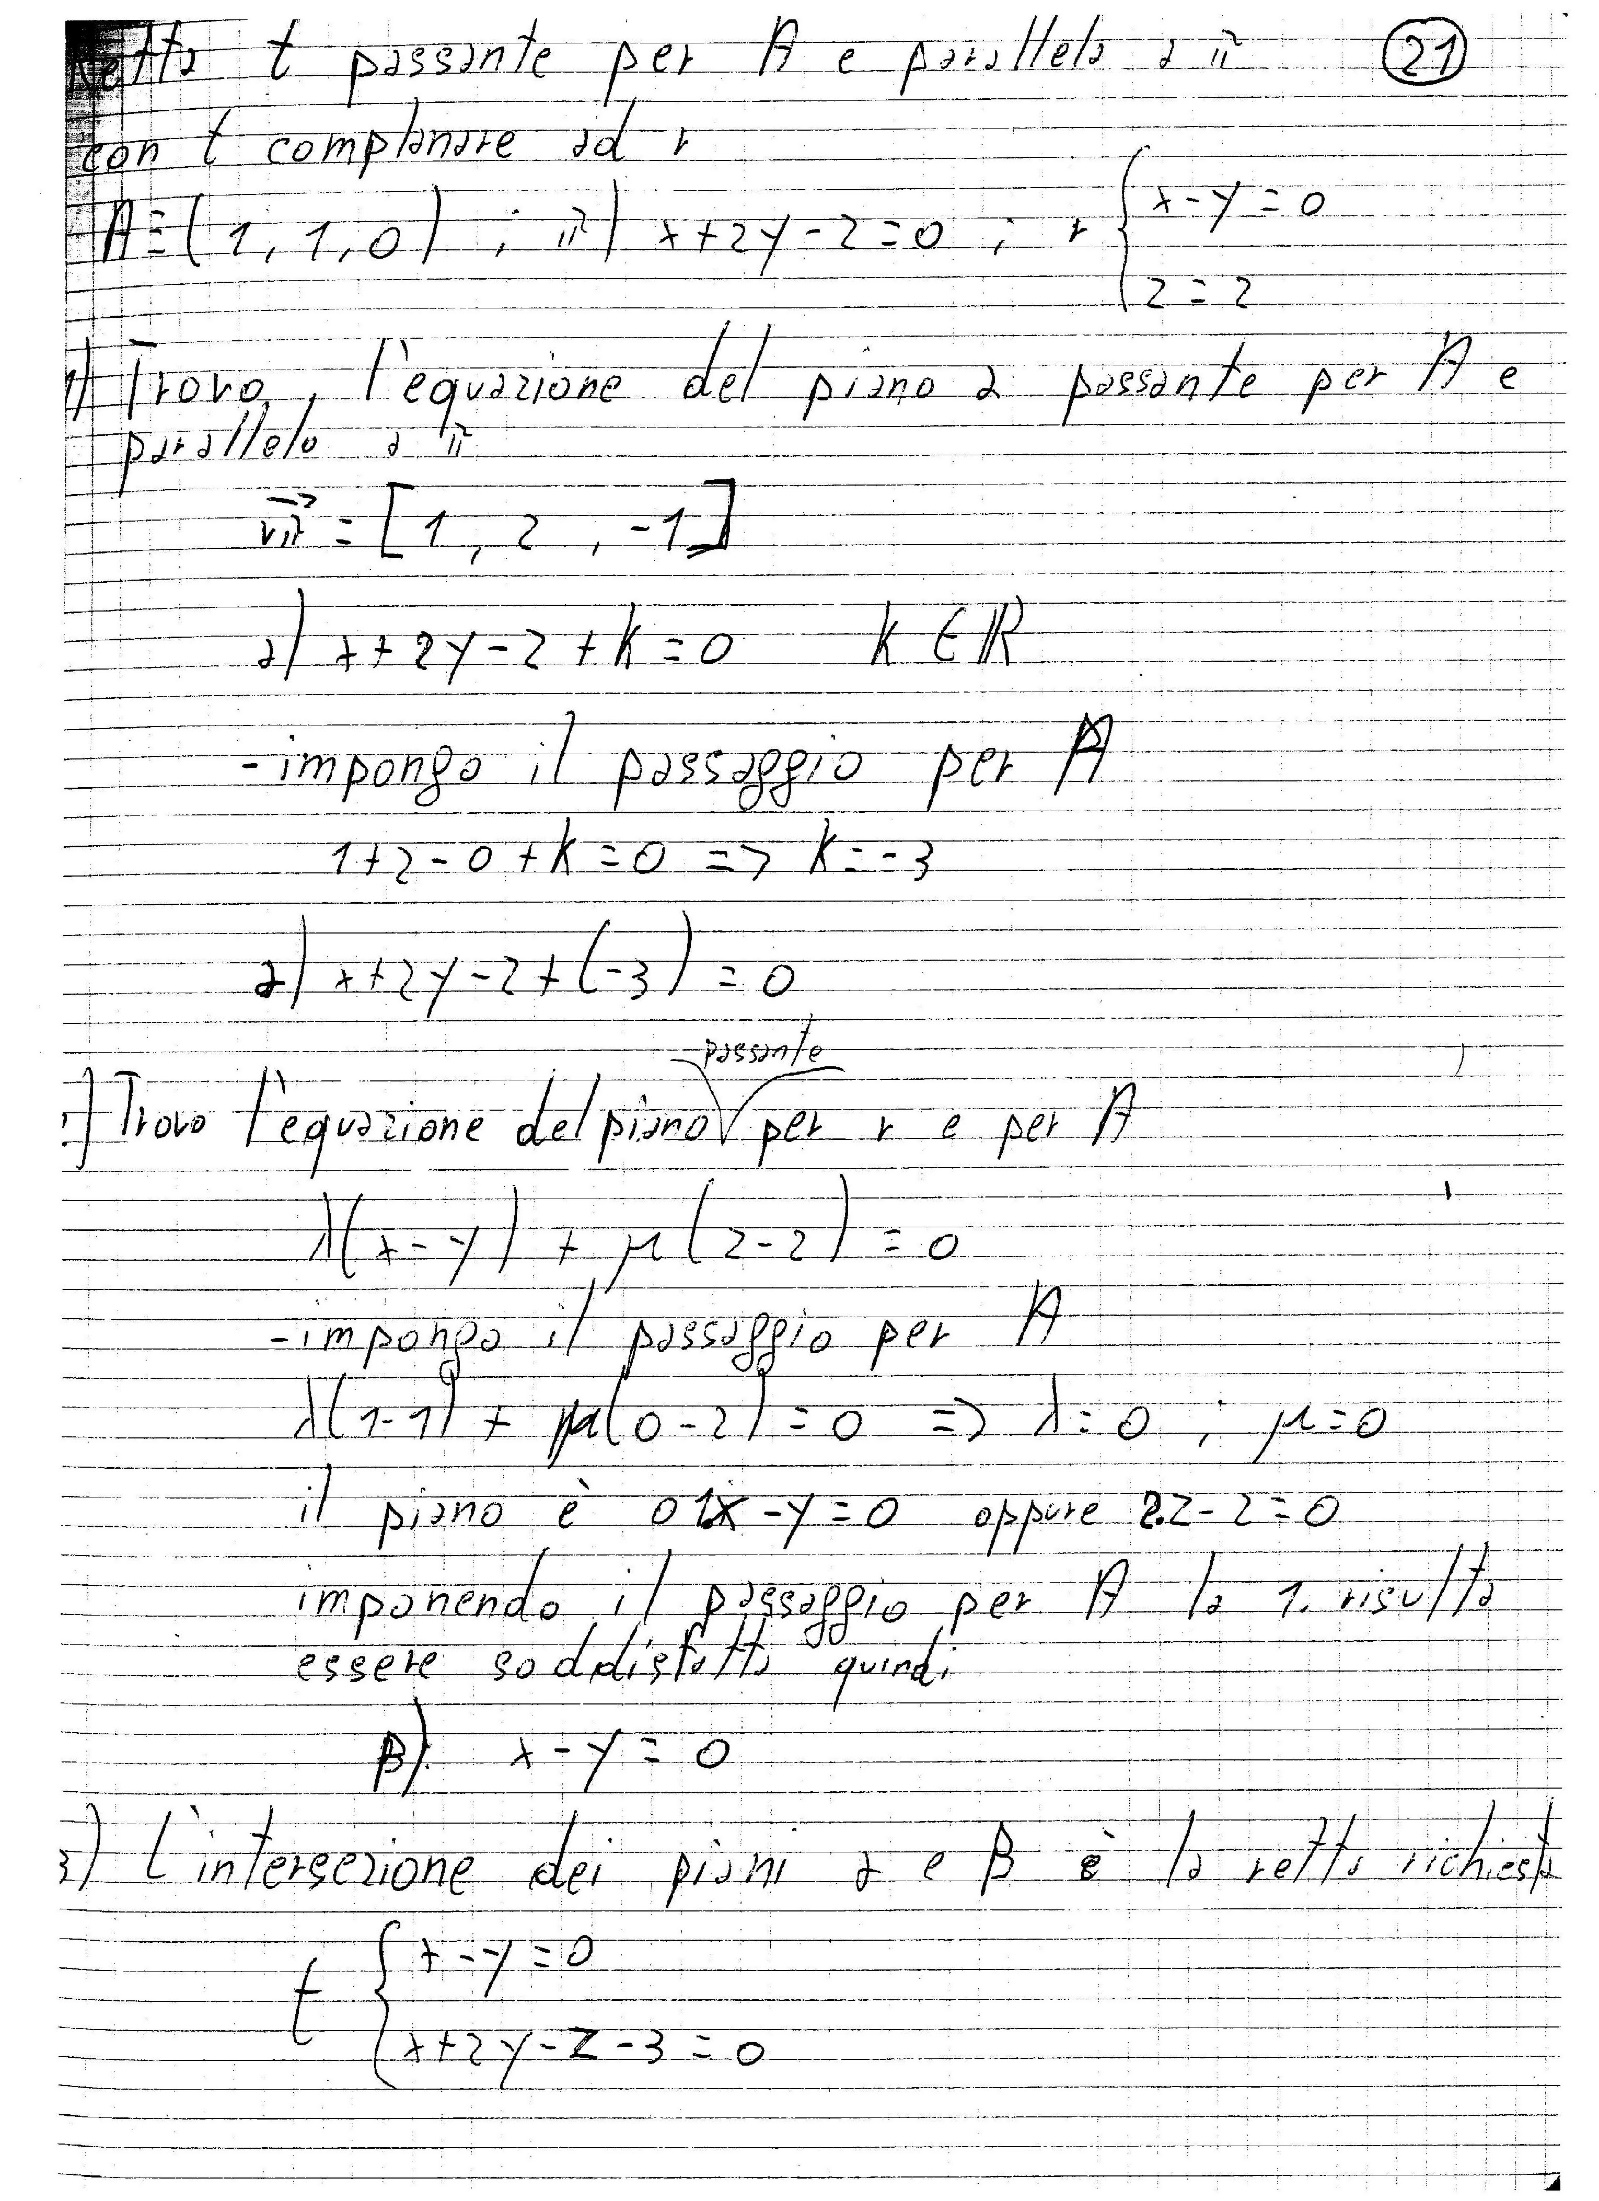 Retta t passante per A e parallela a π (21)
con t complanare ad r
A≡(1,1,0) ; π) x+2y-z=0 ; r { x-y=0
z=2
1) Trovo, l'equazione del piano α passante per A e
parallelo a π
vπ = [1, 2, -1]
α) x+2y-z+k=0 k∈ℝ
-impongo il passaggio per A
1+2-0+k=0 => k=-3
α) x+2y-z+(-3)=0
passante
2) Trovo l'equazione del piano per r e per A
λ(x-y) + μ(z-2) = 0
-impongo il passaggio per A
λ(1-1) + μ(0-2) = 0 => λ=0 ; μ=0
il piano è 0 1. x-y=0 oppure 2. z-2=0
imponendo il passaggio per A la 1. risulta
essere soddisfatta quindi
β) x-y=0
3) L'intersezione dei piani α e β è la retta richiesta
t { x-y=0
x+2y-z-3=0